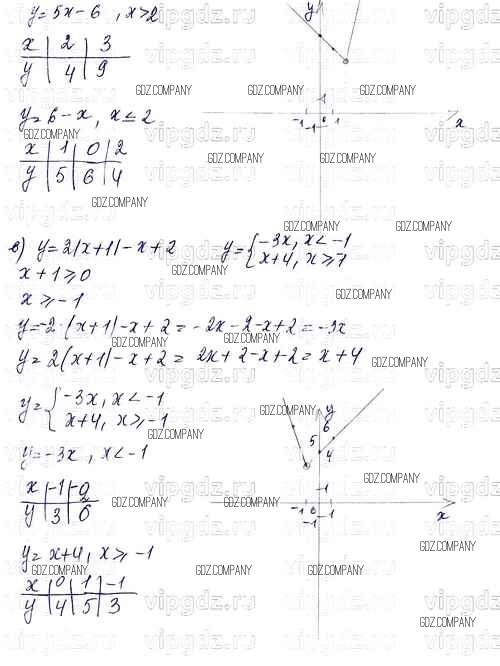 y=5x-6 , x>2
x | 2 | 3
y | 4 | 9
y=6-x, x≤2
x | 1 | 0 | 2
y | 5 | 6 | 4
y
1
-1 0 1
-1
x
в) y=2|x+1|-x+2 y={-3x, x<-1
x+4, x≥1
x+1≥0
x≥-1
y=-2·(x+1)-x+2=-2x-2-x+2=-3x
y=2(x+1)-x+2=2x+2-x+2=x+4
y={-3x, x<-1
x+4, x≥-1
y=-3x, x<-1
x | -1 | -2
y | 3 | 6
y=x+4, x≥-1
x | 0 | 1 | -1
y | 4 | 5 | 3
y
6
5
4
1
-1 0 1
-1
x
GDZ.COMPANY
vipgdz.ru